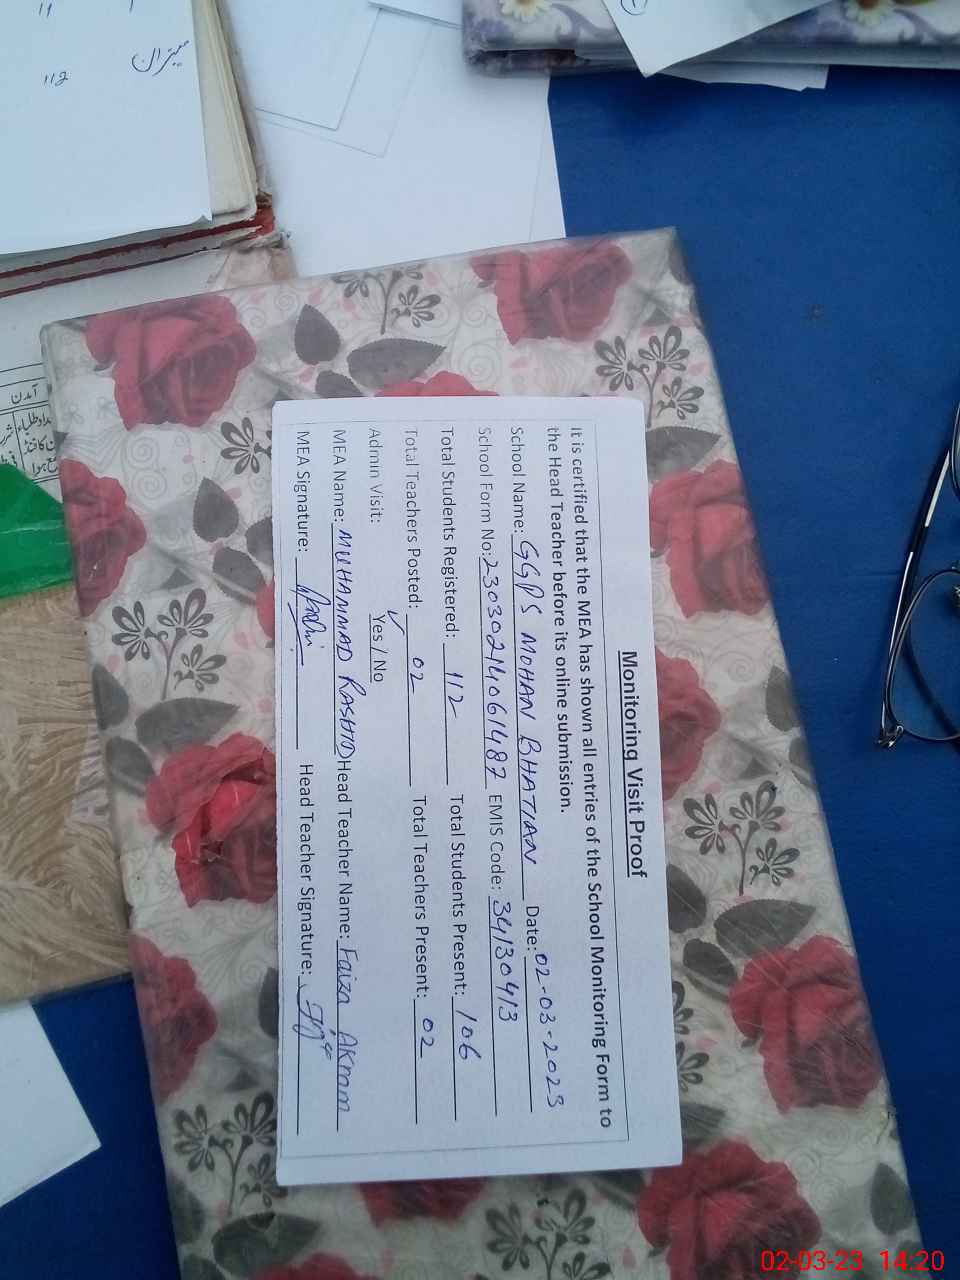 Monitoring Visit Proof
It is certified that the MEA has shown all entries of the School Monitoring Form to
the Head Teacher before its online submission.
School Name: GGPS MOHAN BHATIAN Date: 02-03-2023
School Form No: 23030214061487 EMIS Code: 34130413
Total Students Registered: 112 Total Students Present: 106
Total Teachers Posted: 02 Total Teachers Present: 02
Admin Visit: Yes / No
MEA Name: MUHAMMAD RASHID Head Teacher Name: Faiza Akram
MEA Signature: Head Teacher Signature:
112
آمدن
02-03-23 14:20